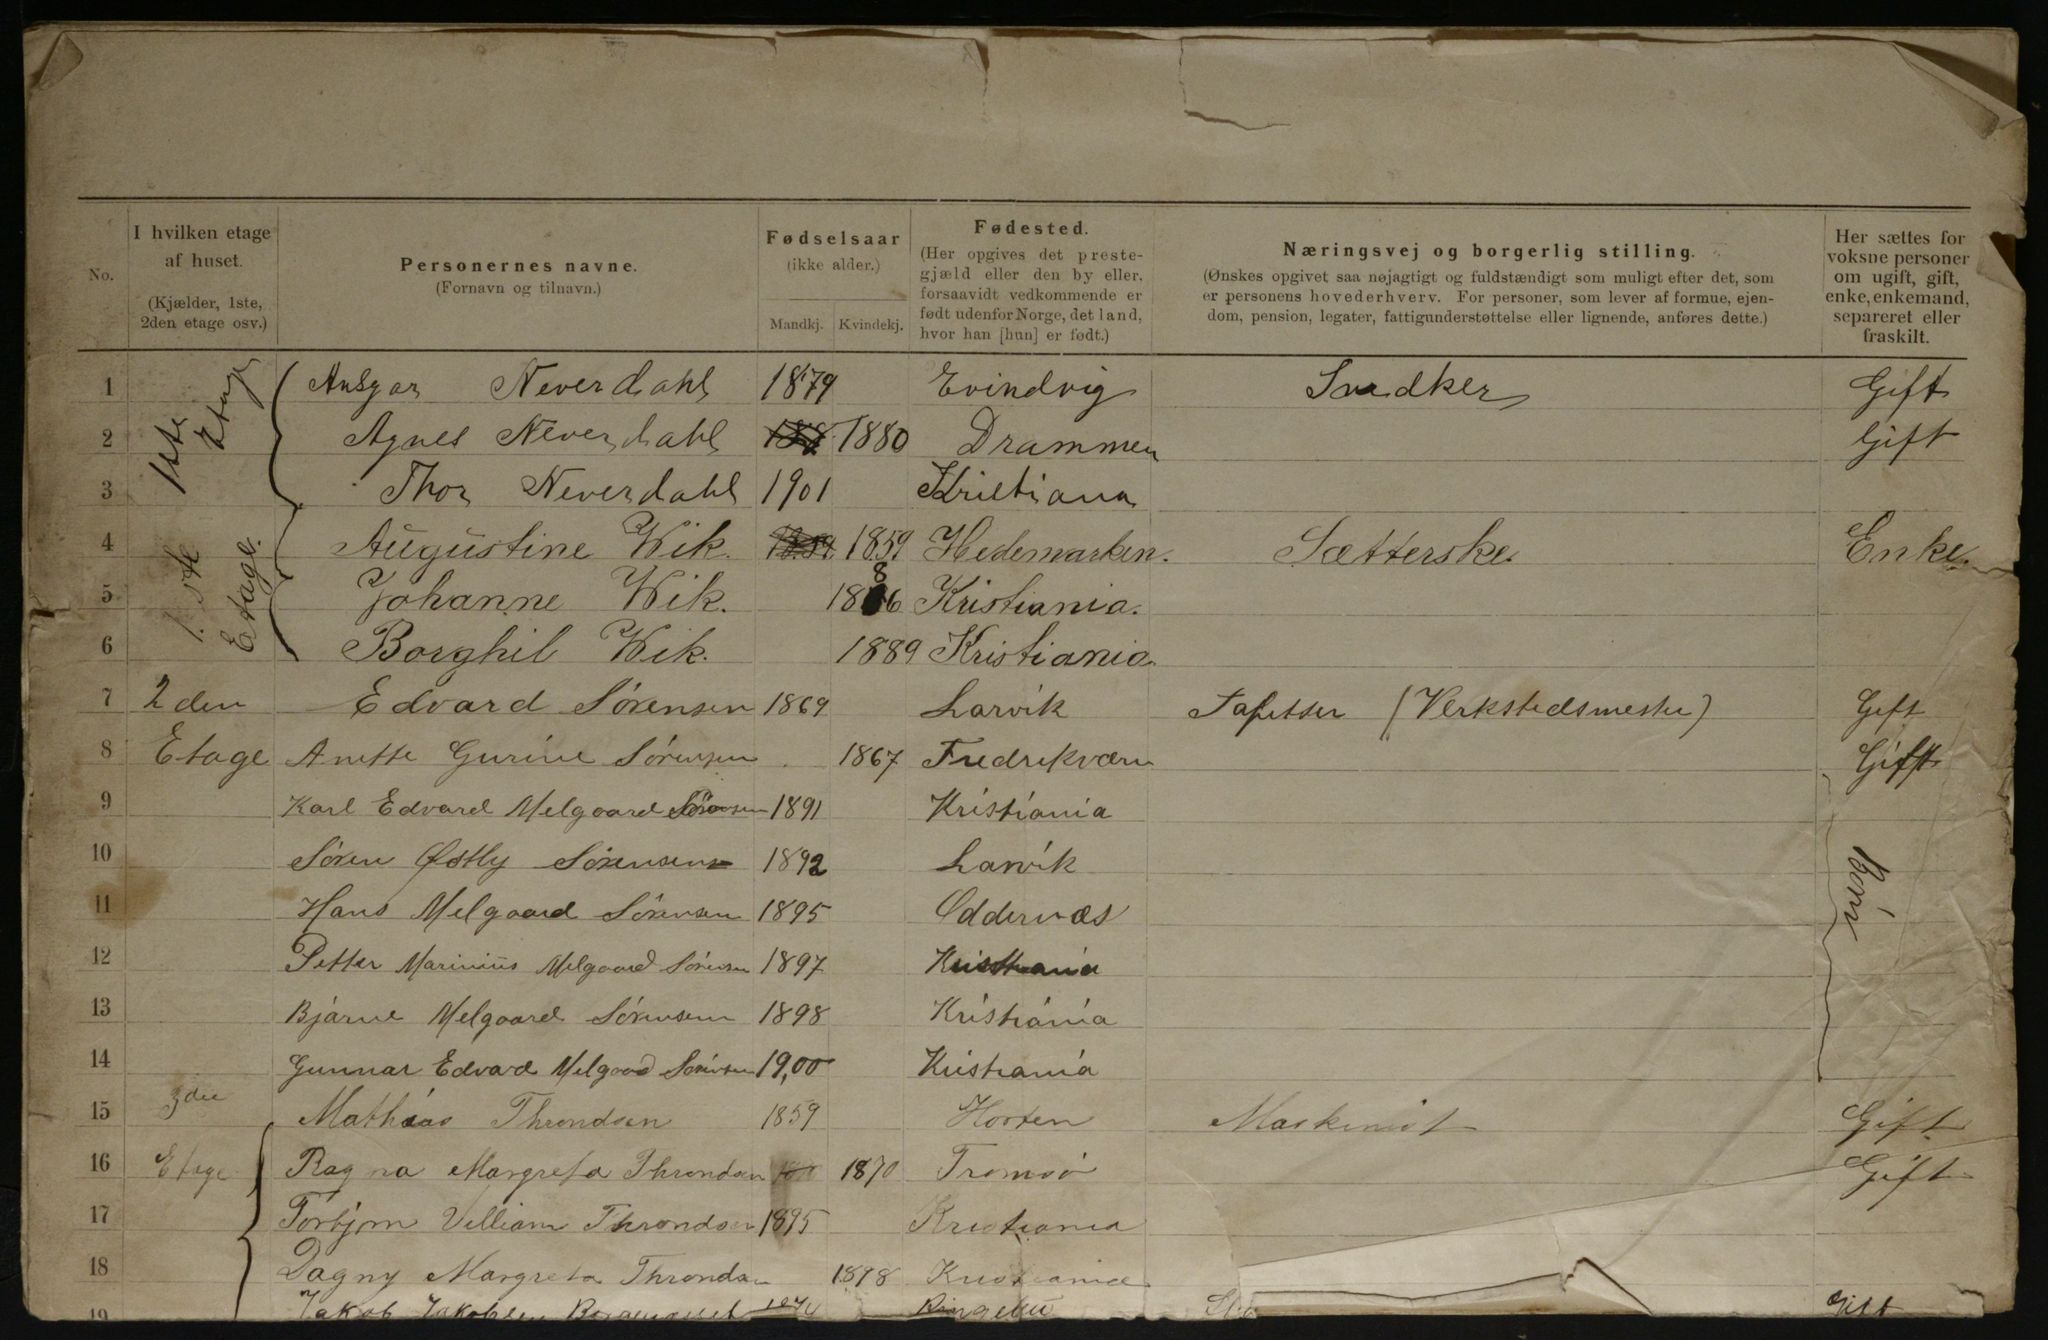 No.
I hvilken etage af huset.
(Kjælder, 1ste, 2den etage osv.)
Personernes navne.
(Fornavn og tilnavn.)
Fødselsaar
(ikke alder.)
Mandkj. Kvindekj.
Fødested.
(Her opgives det preste-
gjæld eller den by eller.
forsaavidt vedkommende er
født udenfor Norge, det land,
hvor han [hun] er født.)
Næringsvej og borgerlig stilling.
(Ønskes opgivet saa nøjagtigt og fuldstændigt som muligt efter det, som
er personens hovederhverv. For personer, som lever af formue, ejen-
dom, pension, legater, fattigunderstøttelse eller lignende, anføres dette.)
Her sættes for
voksne personer
om ugift, gift,
enke, enkemand,
separeret eller
fraskilt.
1ste Etage
1 Ansgar Neverdahl 1879 Evindvig Snedker Gift
2 Agnes Neverdahl 1880 Drammen Gift
3 Thor Neverdahl 1901 Kristiana
1. ste Etage.
4 Augustine Wik. 1859 Hedemarken. Sætterske Enke.
5 Johanne Wik. 1886 Kristiania.
6 Borghil Wik. 1889 Kristiania.
7 2den Edvard Sörensen 1869 Larvik Tapetser (Verkstedsmester) Gift
8 Etage Anette Gurine Sörensen 1867 Fredrikværn Gift
9 Karl Edvard Melgaard Sörensen 1891 Kristiania
10 Sören Østby Sörensen 1892 Larvik
11 Hans Melgaard Sörensen 1895 Oddernæs
12 Petter Marinius Melgaard Sörensen 1897 Kristiania
13 Bjarne Melgaard Sörensen 1898 Kristiania
14 Gunnar Edvard Melgaard Sörensen 19,00 Kristiania
15 3die Mathias Throndsen 1859 Horten Maskinist Gift
16 Etage Ragna Margreta Throndsen 1870 Tromsö Gift
17 Torbjørn Villiam Throndsen 1895 Kristiania
18 Dagny Margreta Throndsen 1898 Kristiania
19 Jakob Jakobsen 1874 Ringebu Gift